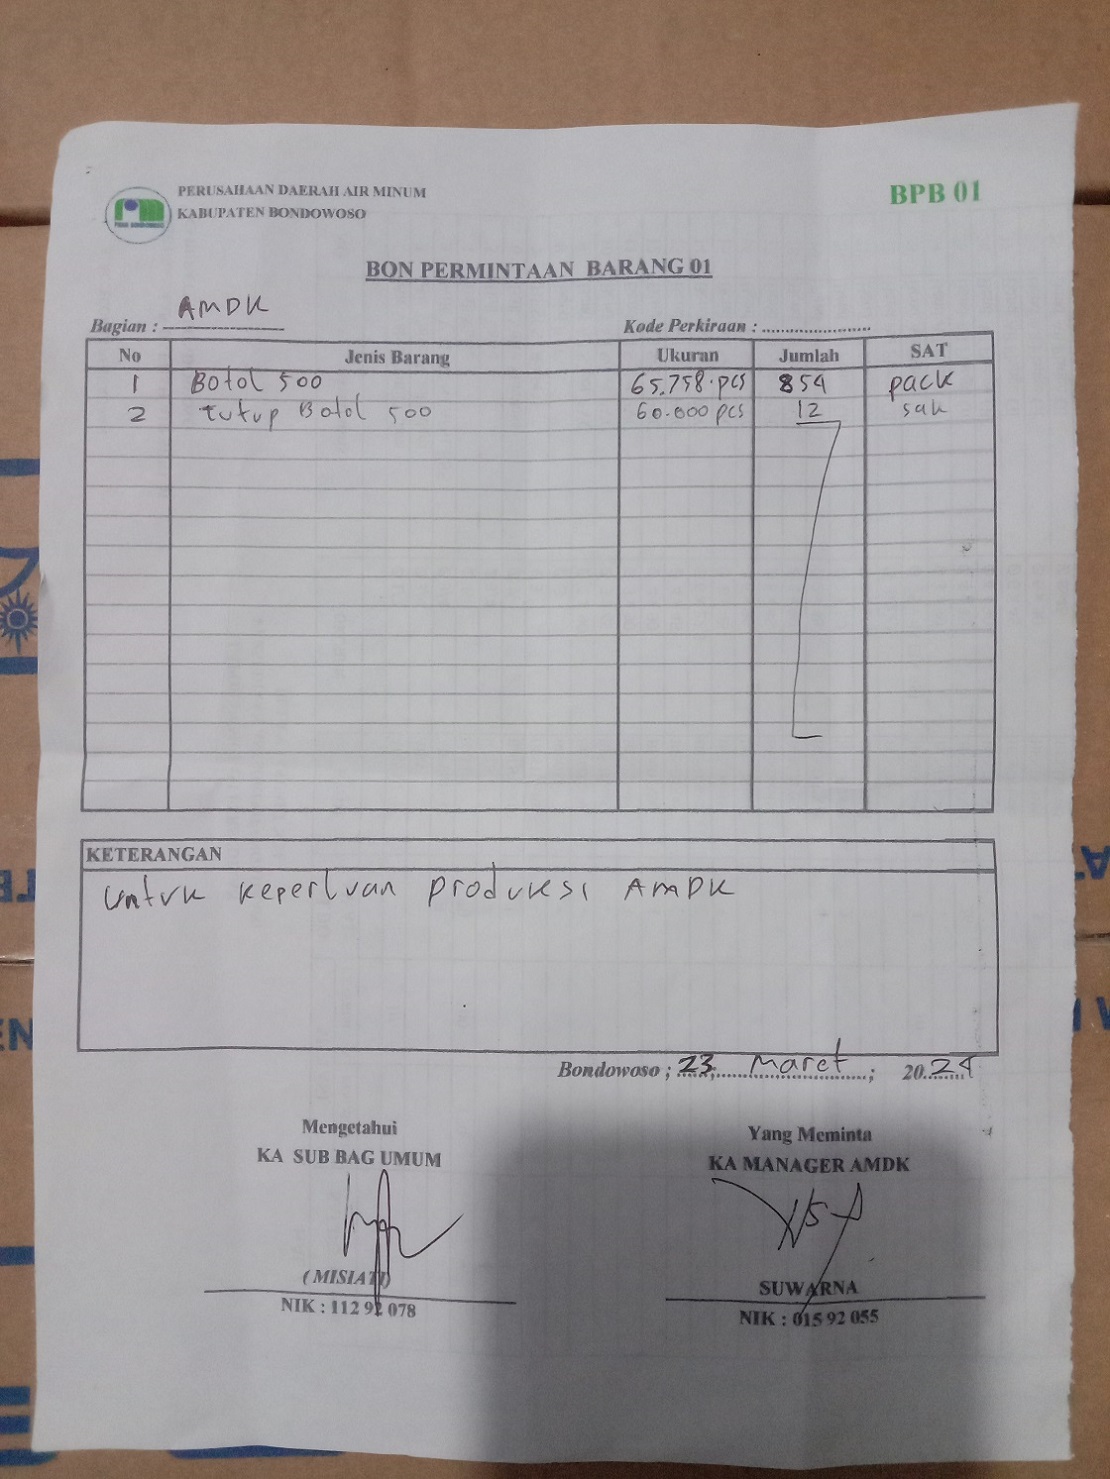 PERUSAHAAN DAERAH AIR MINUM
KABUPATEN BONDOWOSO
BPB 01
BON PERMINTAAN BARANG 01
Bagian : AMDK
Kode Perkiraan : ........................
No Jenis Barang Ukuran Jumlah SAT
1 Botol 500 65.758 pcs 854 pack
2 tutup Botol 500 60.000 pcs 12 sak
KETERANGAN
Untuk keperluan produksi AMDK
Bondowoso ; 23, Maret ; 2024
Mengetahui
KA SUB BAG UMUM
(MISIATI)
NIK : 112 92 078
Yang Meminta
KA MANAGER AMDK
SUWARNA
NIK : 015 92 055